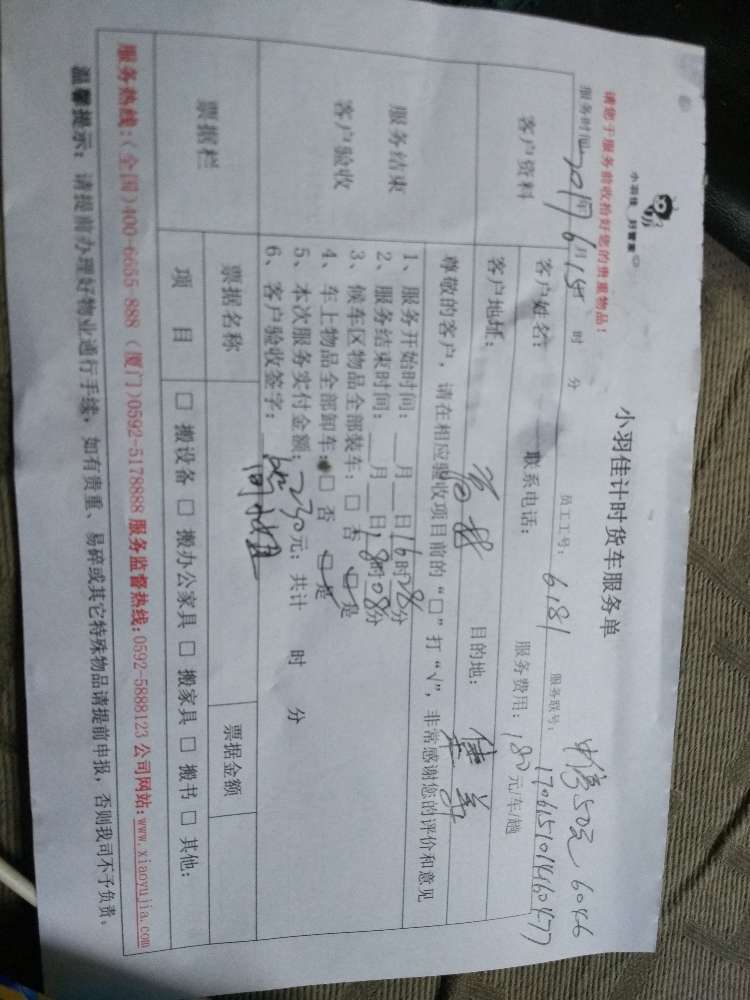 小羽佳 好管家
小羽佳计时货车服务单
中介50元 6046
请您于服务前收拾好您的贵重物品！
员工工号：6181 服务联号：1706151014160477
服务时间：2017年6月15 时 分
客户资料
客户姓名： 联系电话： 服务费用：180元/车/趟
客户地址： 目的地：
服务结束
客户验收
尊敬的客户，请在相应验收项目前的“□”打“√”，非常感谢您的评价和意见
1、服务开始时间：__月__日16时28分
2、服务结束时间：__月__日18时08分
3、候车区物品全部装车：□ 否 □ 是
4、车上物品全部卸车：□ 否 □ 是
5、本次服务实付金额：230元；共计 时 分
6、客户验收签字：
票据栏
票据名称 票据金额
项 目 □ 搬设备 □ 搬办公家具 □ 搬家具 □ 搬书 □ 其他：
服务热线：（全国）400-6655 888（厦门）0592-5178888 服务监督热线：0592-5888123 公司网站：www.xiaoyujia.com
温馨提示：请提前办理好物业通行手续，如有贵重、易碎或其它特殊物品请提前申报，否则我司不予负责。